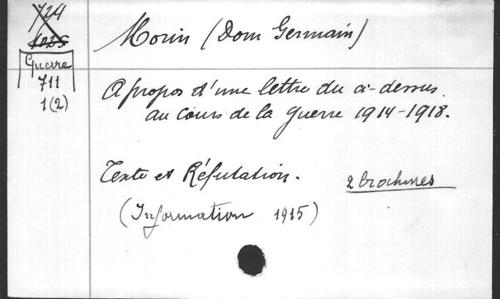 724
Guerre
711
1(2)
Morin (Dom Germain)
A propos d'une lettre du ci-dessus
au cours de la guerre 1914-1918.
Texte et Réfutation.
2 brochures
(Information 1915)